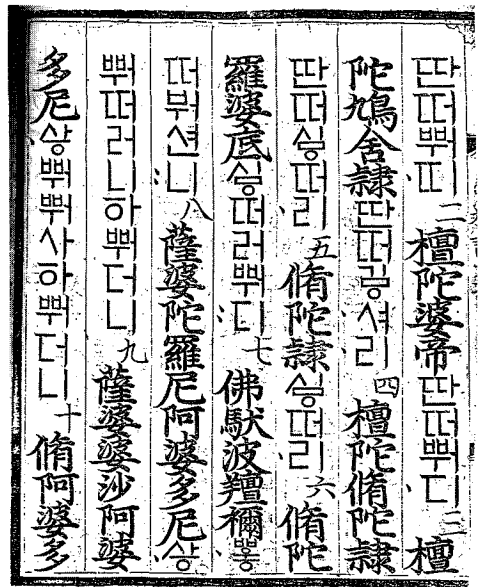 딴떠뿨띠二檀陀婆帝딴떠뿨디三檀
陀鳩舍隸딴떠궁셔리四檀陀脩陀隸
딴떠슝떠리五脩陀隸슝떠리六脩陀
羅婆底슝떠러뿨디七佛馱波羶禰뿡
떠붜션니八薩婆陀羅尼阿婆多尼상
뿨떠러니하뿨더니九薩婆婆沙阿婆
多尼상뿨뿨사하뿨더니十脩阿婆多